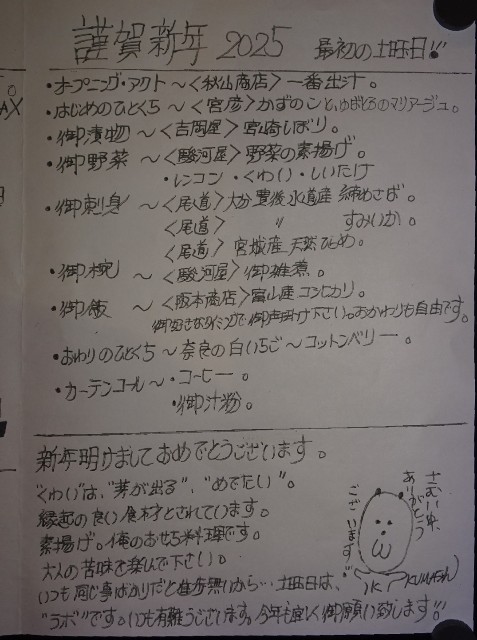 謹賀新年 2025 最初の土曜日!!
・オープニング・アクト～〈秋山商店〉一番出汁。
・はじめのひとくち～〈宮彦〉かずのこと、ゆばとろのマリアージュ。
・御漬物～〈吉岡屋〉宮崎しぼり。
・御野菜～〈駿河屋〉野菜の素揚げ。
・レンコン・くわい・しいたけ
・御刺身～〈尾道〉大分豊後水道産 締めさば。
〈尾道〉 〃 すみいか。
〈尾道〉宮城産 天然ひらめ。
・御椀～〈駿河屋〉御雑煮。
・御飯～〈阪本商店〉富山産コシヒカリ。
御好きなタイミングで御声掛け下さい。おかわりも自由です。
・おわりのひとくち～奈良の白いちご～コットンベリー。
・カーテンコール～・コーヒー。
・御汁粉。
新年明けましておめでとうございます。
"くわい"は、"芽が出る"、"めでたい"。
縁起の良い食材とされています。
素揚げ。俺のおせち料理です。
大人の苦味を楽しんで下さい。
いつも同じ事ばかりだと進歩無いから…土曜日は、
"ラボ"です。いつも有難うございます。今年も宜しく御願い致します!!
さむい中、
ありがとう
ございます!
AX